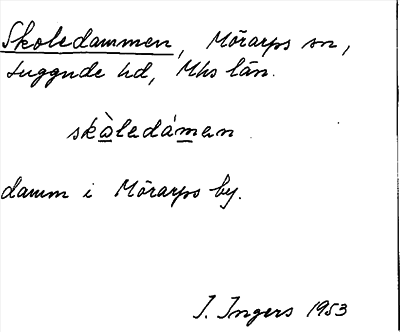 Skoledammen, Mörarps sn,
Luggude hd, Mhs län.
skàledámen
damm i Mörarps by.
I. Ingers 1953